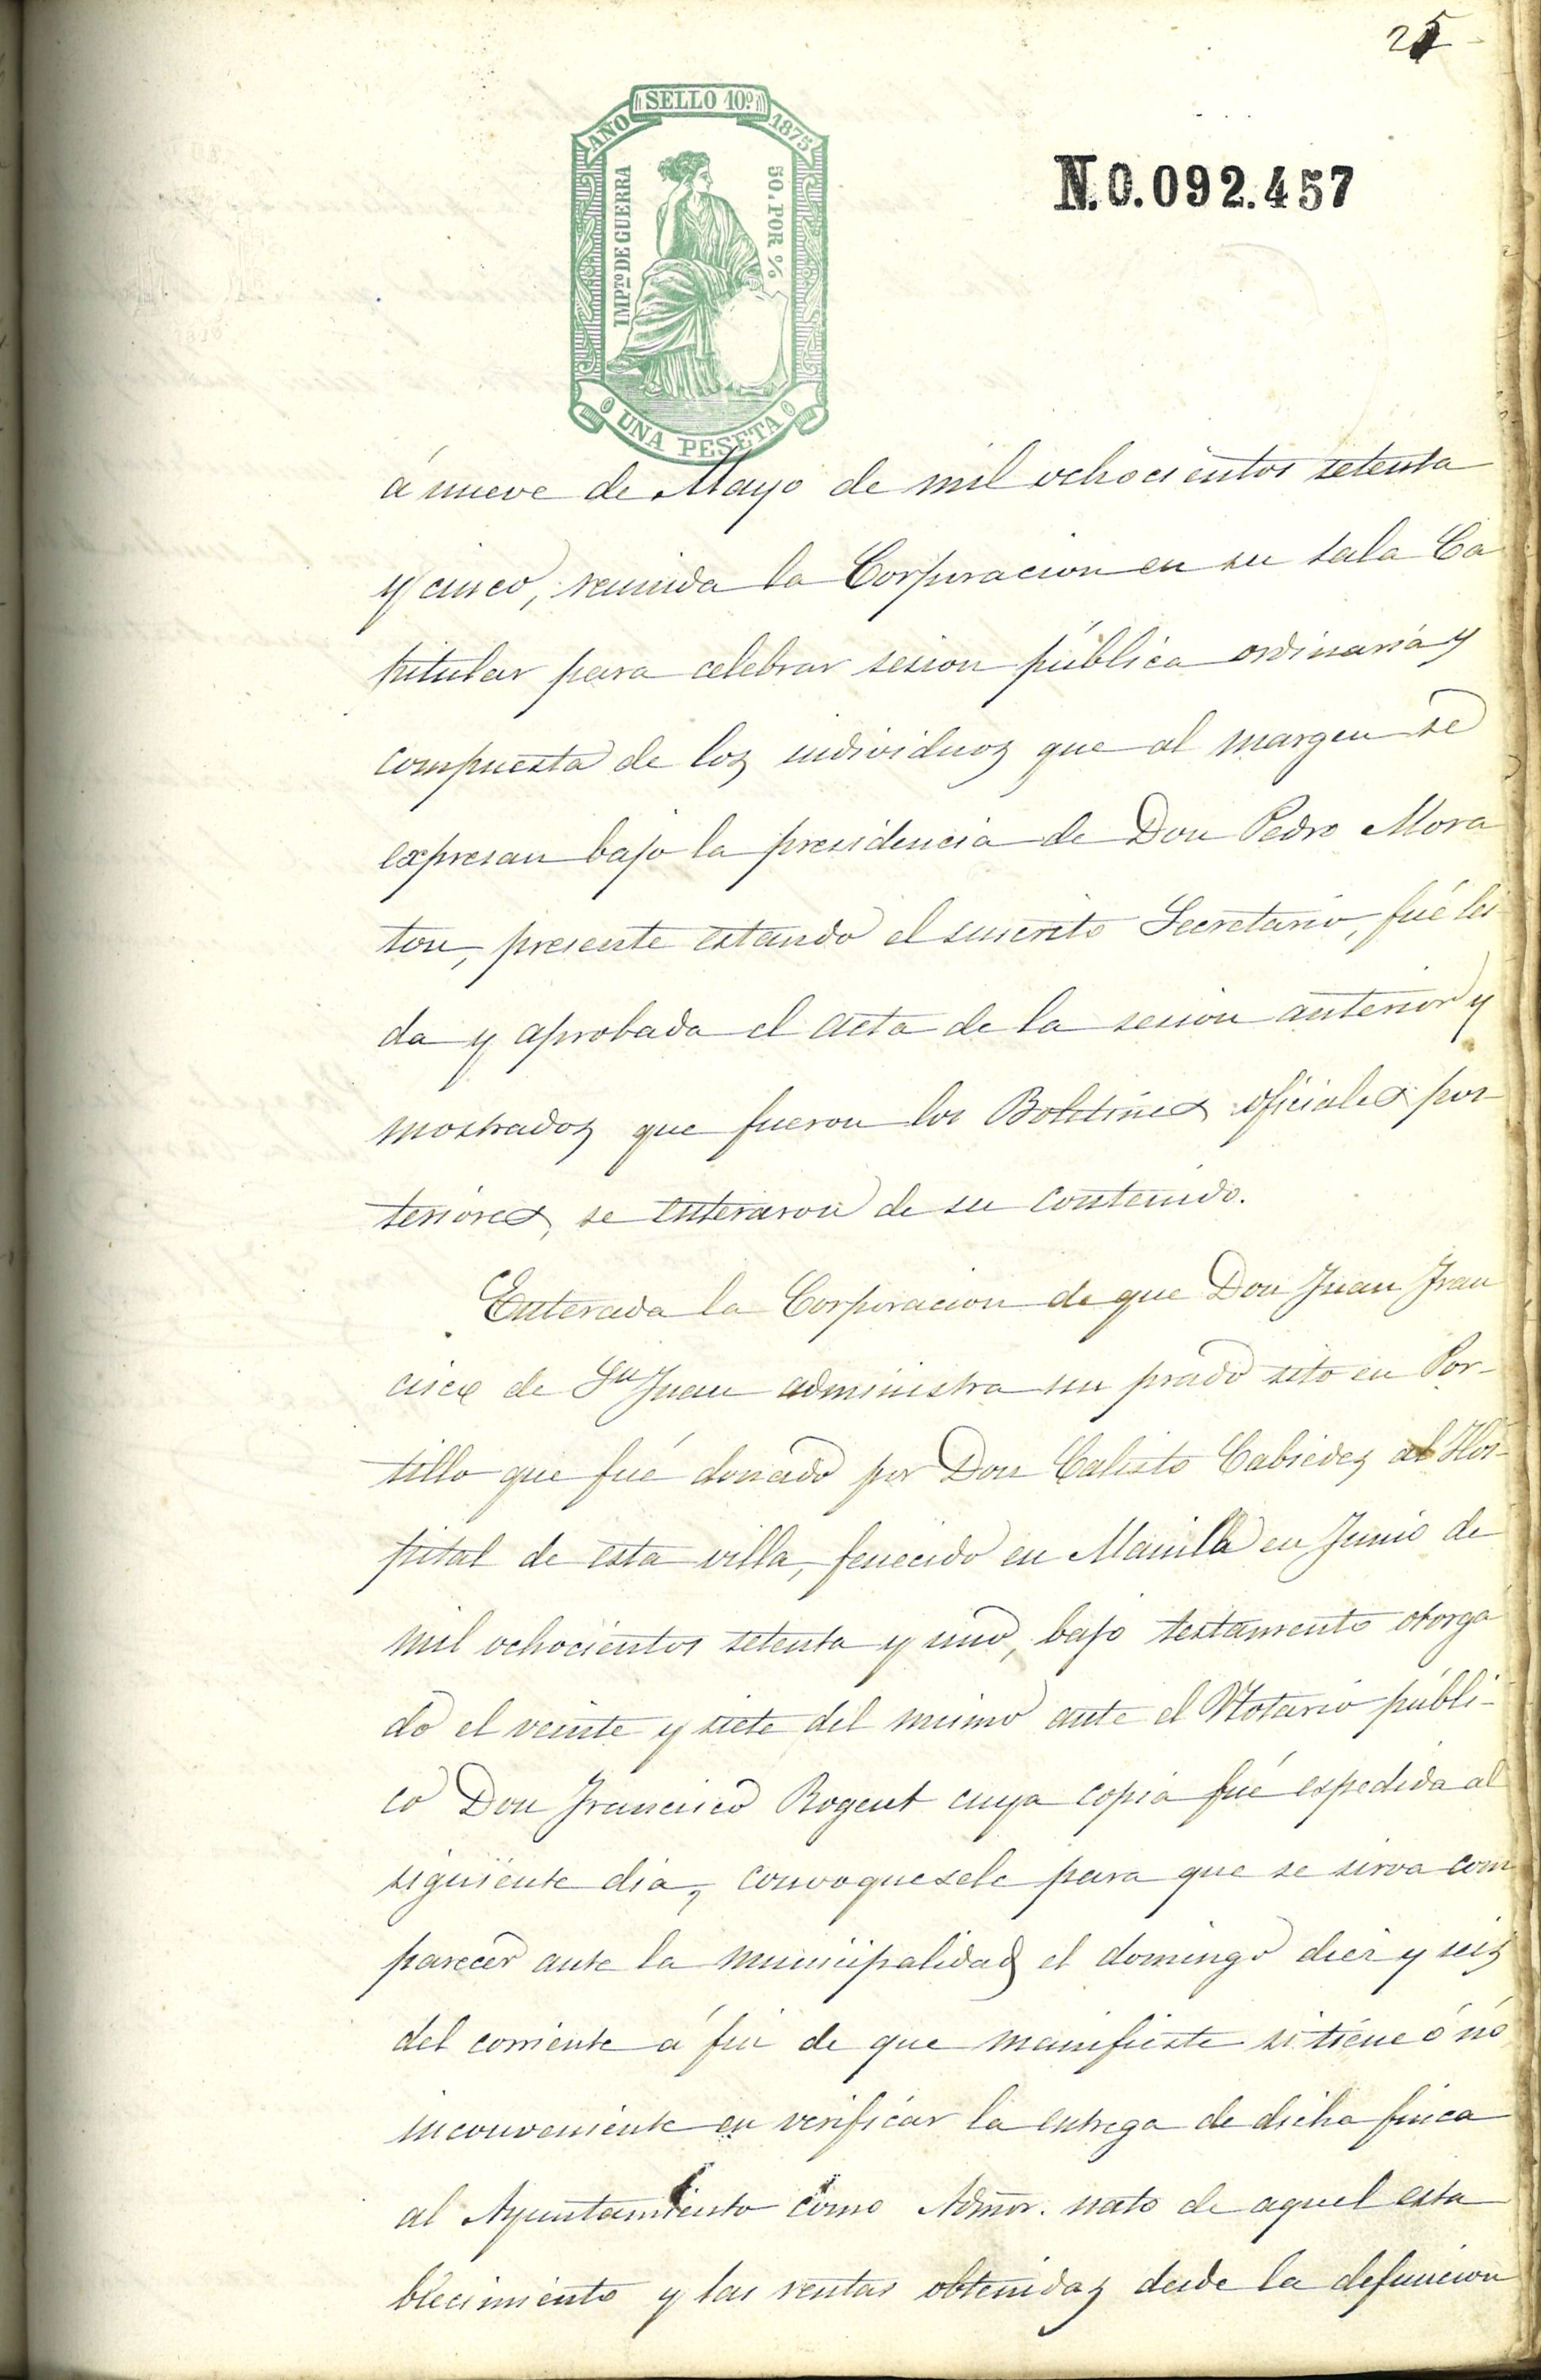 25
SELLO 10º
AÑO 1875
IMPTO DE GUERRA
50 POR %
UNA PESETA
N.0.092.457
á nueve de Mayo de mil ochocientos setenta
y cinco, reunida la Corporacion en su sala Ca
pitular para celebrar sesion pública ordinaria y
compuesta de los individuos que al margen se
expresan bajo la presidencia de Don Pedro Mora
ton, presente estando el suscrito Secretario, fué lei
da y aprobada el acta de la sesion anterior y
mostrados que fueron los Boletines oficiales pos-
teriores, se enteraron de su contenido.
Enterada la Corporacion de que Don Juan Fran
cisco de Sn Juan administra un prado sito en Por-
tillo que fué donado por Don Calisto Cabiedes al Hos-
pital de esta villa, fenecido en Manila en Junio de
mil ochocientos setenta y uno, bajo testamento otorga
do el veinte y siete del mismo ante el Notario públi-
co Don Francisco Rogent cuya copia fué espedida al
siguiente dia, convoquesele para que se sirva com
parecer ante la municipalidad el domingo diez y seis
del corriente á fin de que manifieste si tiene ó nó
inconveniente en verificar la entrega de dicha finca
al Ayuntamiento como Admor. nato de aquel esta
blecimiento y las rentas obtenidas desde la defuncion